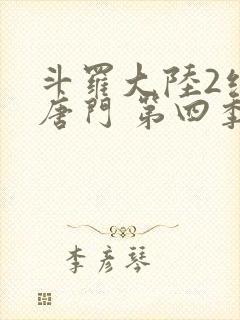 斗羅大陸2
唐門 第四季
李彦琴